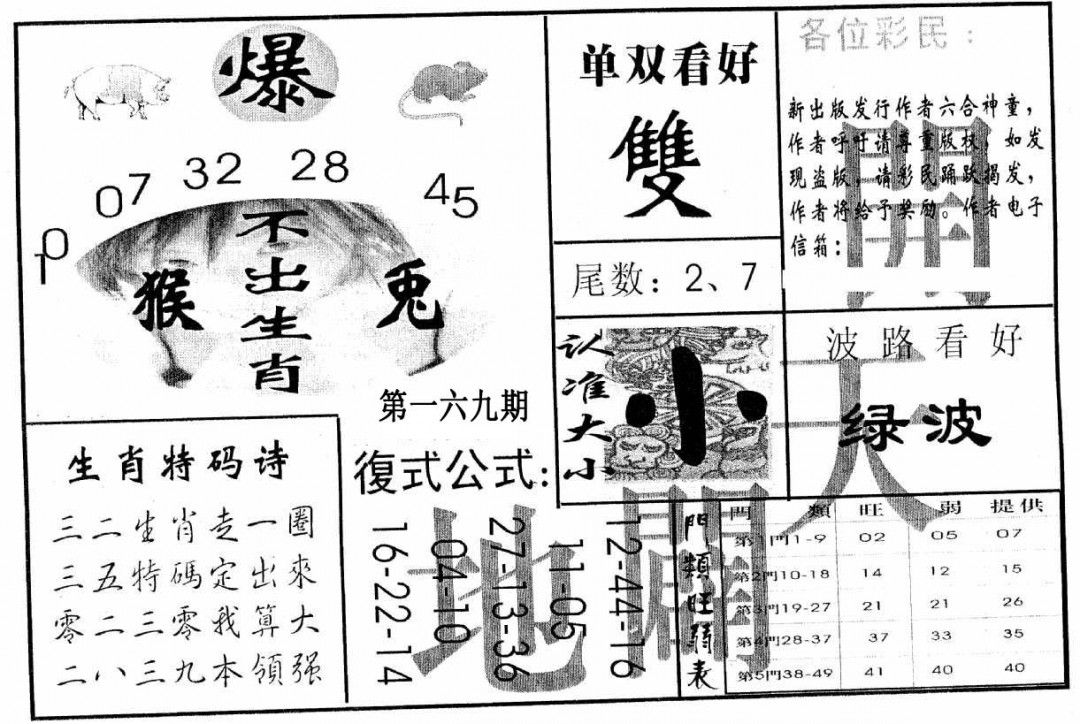 爆
10 07 32 28 45
不出生肖
猴 兎
第一六九期
单双看好
雙
尾数：2、7
认准大小
小
各位彩民：
新出版发行作者六合神童，
作者呼吁请尊重版权，如发
现盗版，请彩民踊跃揭发，
作者将给予奖励。作者电子
信箱：
波路看好
绿波
生肖特码诗
三二生肖走一圈
三五特碼定出來
零二三零我算大
二八三九本領强
復式公式：
16-22-14
04-10
27-13-36
11-05
12-44-16
門類旺弱表
門類 旺 弱 提供
第1門1-9 02 05 07
第2門10-18 14 12 15
第3門19-27 21 21 26
第4門28-37 37 33 35
第5門38-49 41 40 40
天
地
開